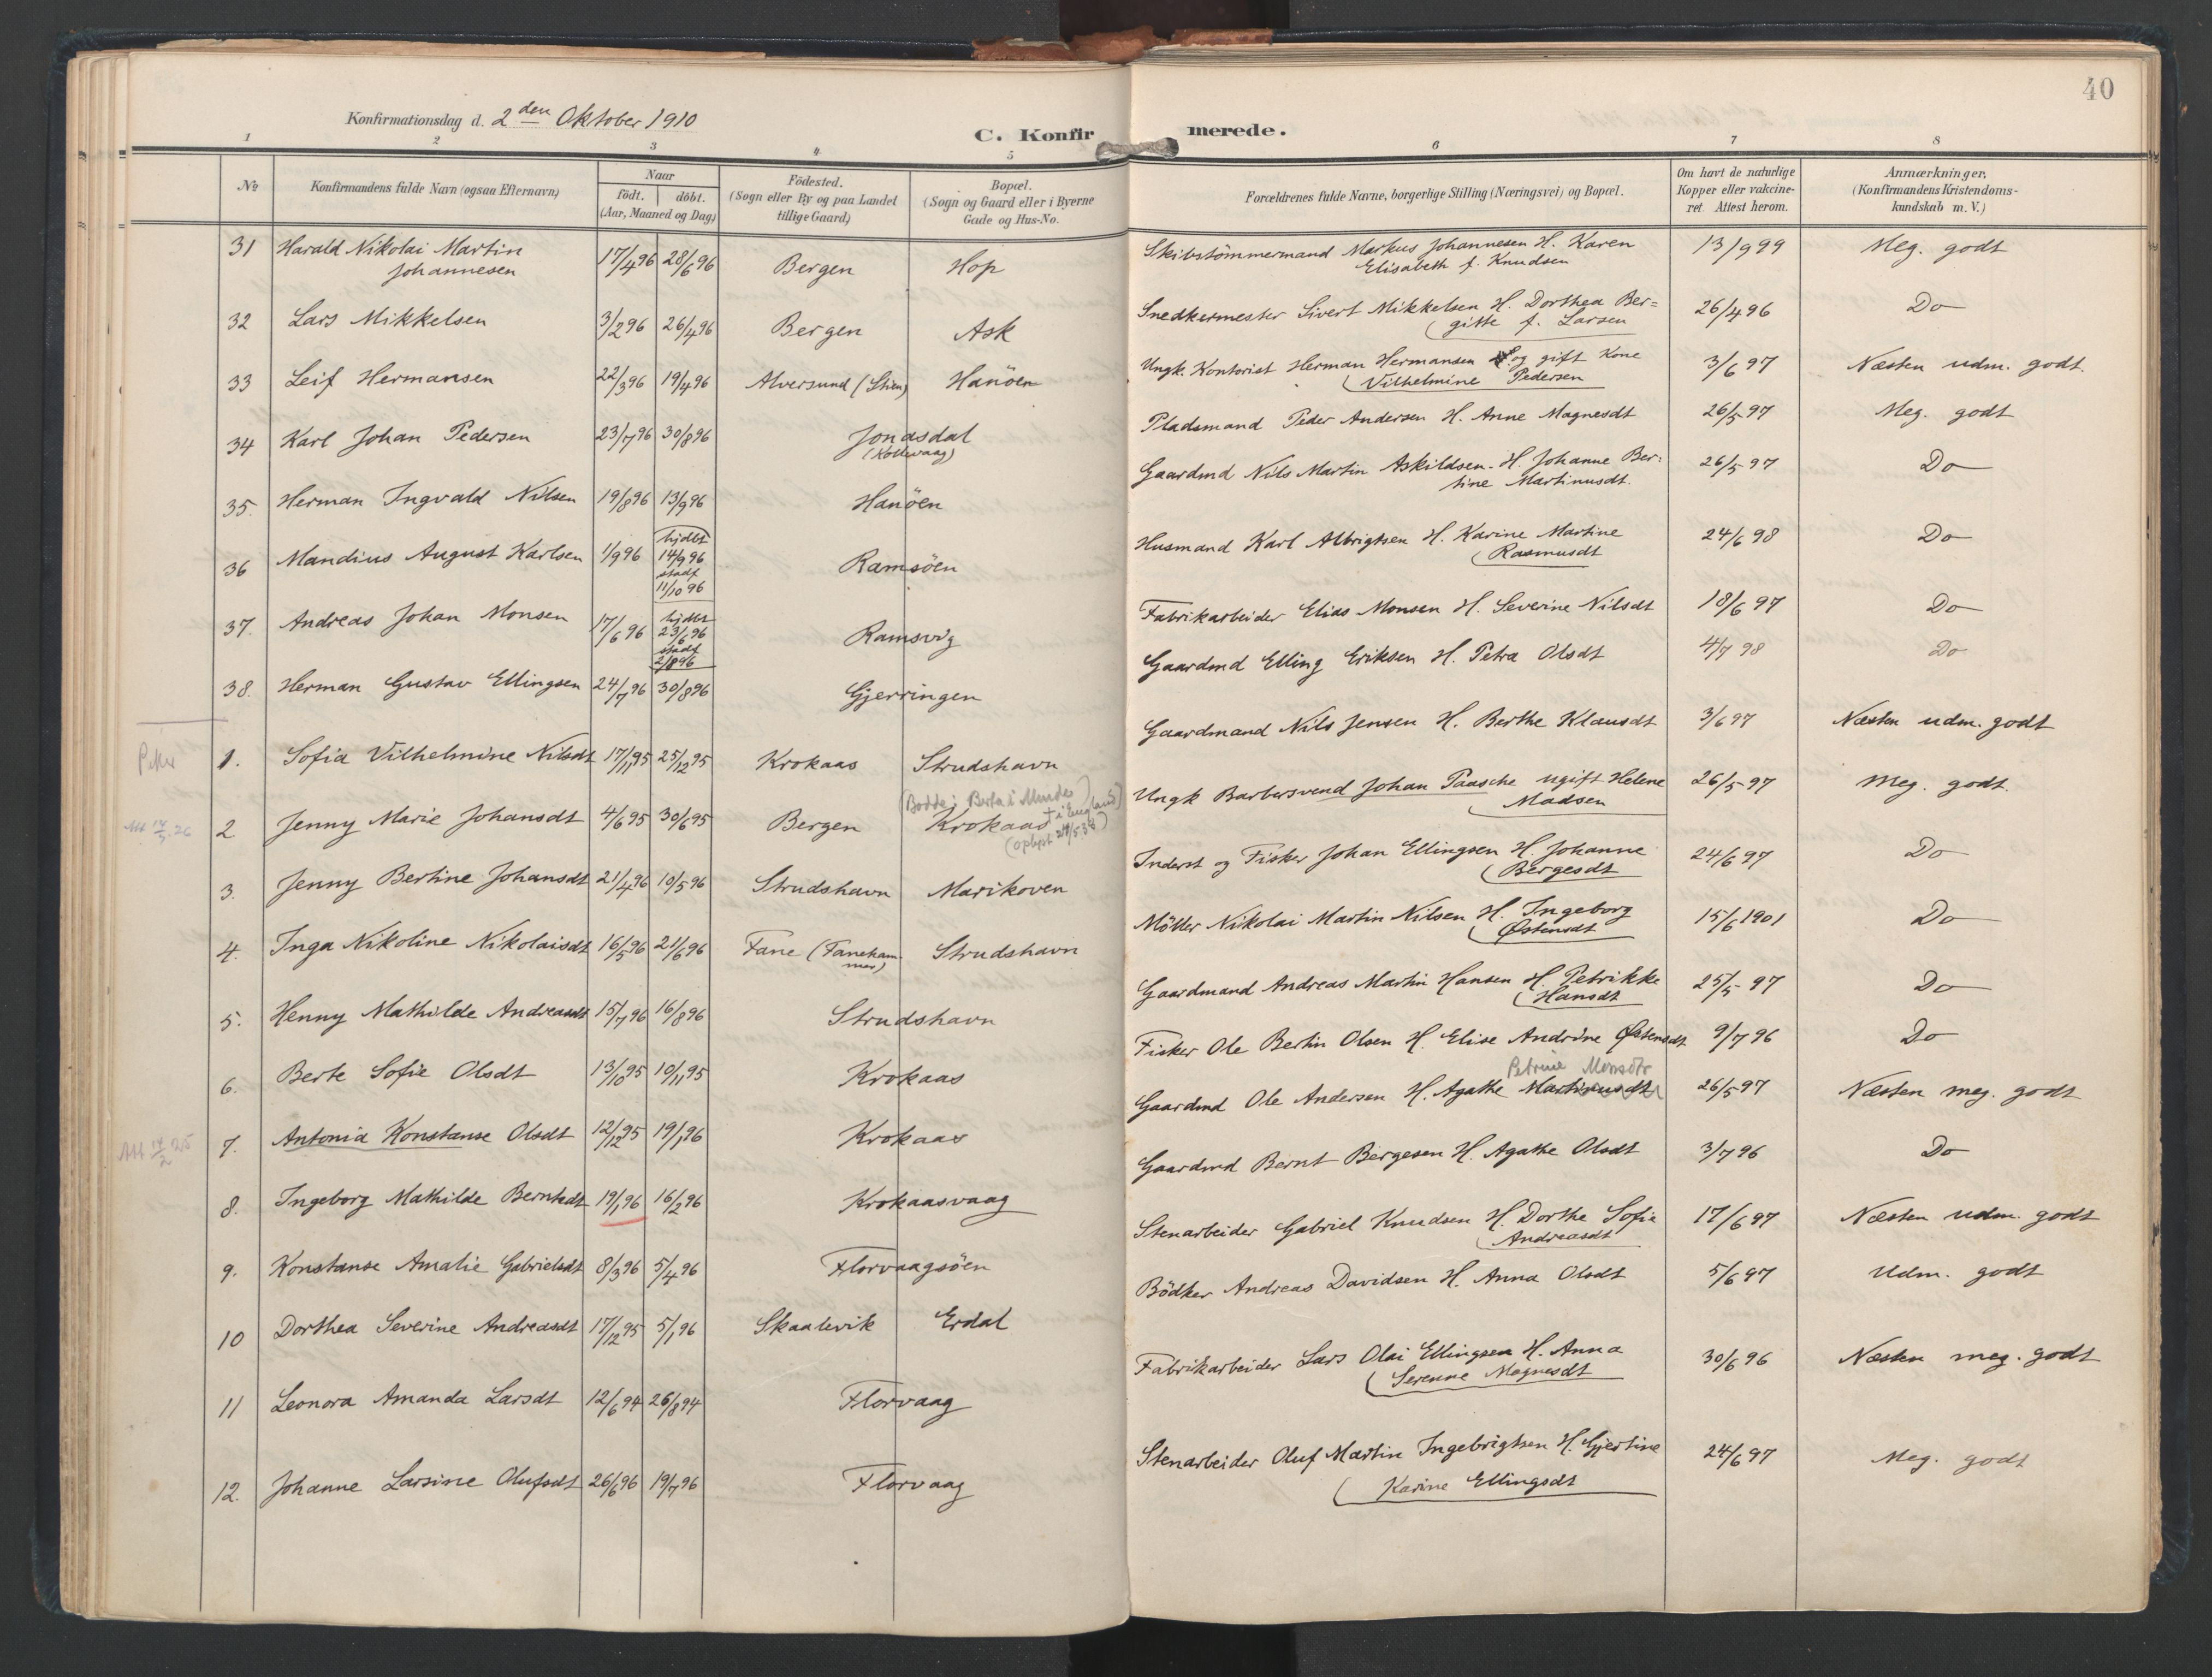 40
Konfirmationsdag d. 2den Oktober 1910
C. Konfirmerede.
1 2 3 4 5 6 7 8
No
Konfirmandens fulde Navn (ogsaa Efternavn)
Naar
födt. döbt.
(Aar, Maaned og Dag)
Födested.
(Sogn eller By og paa Landet
tillige Gaard)
Bopæl.
(Sogn og Gaard eller i Byerne
Gade og Hus-No.
Forældrenes fulde Navne, borgerlige Stilling (Næringsvei) og Bopæl.
Om havt de naturlige
Kopper eller vakcine-
ret. Attest herom.
Anmærkninger.
(Konfirmandens Kristendoms-
kundskab m. V.)
31 Harald Nikolai Martin
Johannesen 17/4 96 28/6 96 Bergen Hop
Skibstömmermand Markus Johannesen H. Karen
Elisabeth f. Knudsen 13/9 99 Meg. godt
32 Lars Mikkelsen 3/2 96 26/4 96 Bergen Ask
Snedkermester Sivert Mikkelsen H. Dorthea Ber=
gitte f. Larsen 26/4 96 Do
33 Leif Hermansen 22/3 96 19/4 96 Alversund (Stien) Hanöen
Ungk. Kontorist Herman Hermansen og gift Kone
Vilhelmine Pedersen 3/6 97 Næsten udm. godt.
34 Karl Johan Pedersen 23/7 96 30/8 96 Jonasdal
(Kollevaag)
Pladsmand Peder Andersen H. Anne Magnesdt 26/5 97 Meg. godt
35. Herman Ingvald Nilsen 19/8 96 13/9 96 Hanöen
Gaardmd Nils Martin Askildsen. H. Johanne Ber:
tine Martinusdt. 26/5 97 Do
36 Mandius August Karlsen 1/9 96 hjdbt
14/9 96
stadf
11/10 96 Ramsöen
Husmand Karl Albrigtsen H. Karine Martine
Rasmusdt 24/6 98 Do
37. Andreas Johan Monsen 17/6 96 hjdbt
23/6 96
stadf
2/8 96 Ramsvig
Fabrikarbeider Elias Monsen H. Severine Nilsdt 18/6 97 Do
38. Herman Gustav Ellingsen 24/7 96 30/8 96 Gjerringen
Gaardmd Elling Eriksen H. Petra Olsdt 4/7 98 Do
1. Sofia Vilhelmine Nilsdt 17/11 95 25/12 95 Krokaas Strudshavn
Gaardmand Nils Jensen H. Berthe Klausdt 3/6 97 Næsten udm. godt
Att 26
2 Jenny Marie Johansdt 4/6 95 30/6 95 Bergen Krokaas
(Bodde i
† i England)
(oplyst 24/5 38)
Ungk Barbersvend Johan Paasche ugift Helene
Madsen 26/5 97 Meg. godt.
3. Jenny Bertine Johansdt 21/4 96 10/5 96 Strudshavn Marikoven
Inderst og Fisker Johan Ellingsen H. Johanne
Bergesdt 24/6 97 Do
4. Inga Nikoline Nikolaisdt 16/5 96 21/6 96 Fane (Faneham-
mer) Strudshavn
Möller Nikolai Martin Nilsen H. Ingeborg
Østensdt 15/6 1901 Do
5. Henny Mathilde Andreasdt 15/7 96 16/8 96 Strudshavn
Gaardmand Andreas Martin Hansen H. Petrikke
Hansdt 25/5 97 Do
6. Berte Sofie Olsdt 13/10 95 10/11 95 Krokaas
Fisker Ole Bertin Olsen H. Elise Andrine Østensdt 9/7 96 Do
Att 14/2 25
7. Antonia Konstanse Olsdt 12/12 95 19/1 96 Krokaas
Petrine Monsdtr
Gaardmd Ole Andersen H. Agathe Martinusdt 26/5 97 Næsten meg. godt
8. Ingeborg Mathilde Berntsdt 19/1 96 16/2 96 Krokaasvaag
Gaardmd Bernt Bergesen H. Agathe Olsdt 3/7 96 Do
9. Konstanse Amalie Gabrielsdt 8/3 96 5/4 96 Florvaagsöen
Stenarbeider Gabriel Knudsen H. Dorthe Sofie
Andreasdt 17/6 97 Næsten udm. godt
10 Dorthea Severine Andreasdt 17/12 95 5/1 96 Skaalevik Erdal
Bödker Andreas Davidsen H. Anna Olsdt 5/6 97 Udm. godt
11 Leonora Amanda Larsdt 12/6 94 26/8 94 Florvaag
Fabrikarbeider Lars Olai Ellingsen H. Anna
Serenne Magnesdt 30/6 96 Næsten meg. godt
12. Johanne Larsine Olufsdt 26/6 96 19/7 96 Florvaag
Stenarbeider Oluf Martin Ingebrigtsen H. Gjertine
Karine Ellingsdt 24/6 97 Meg. godt